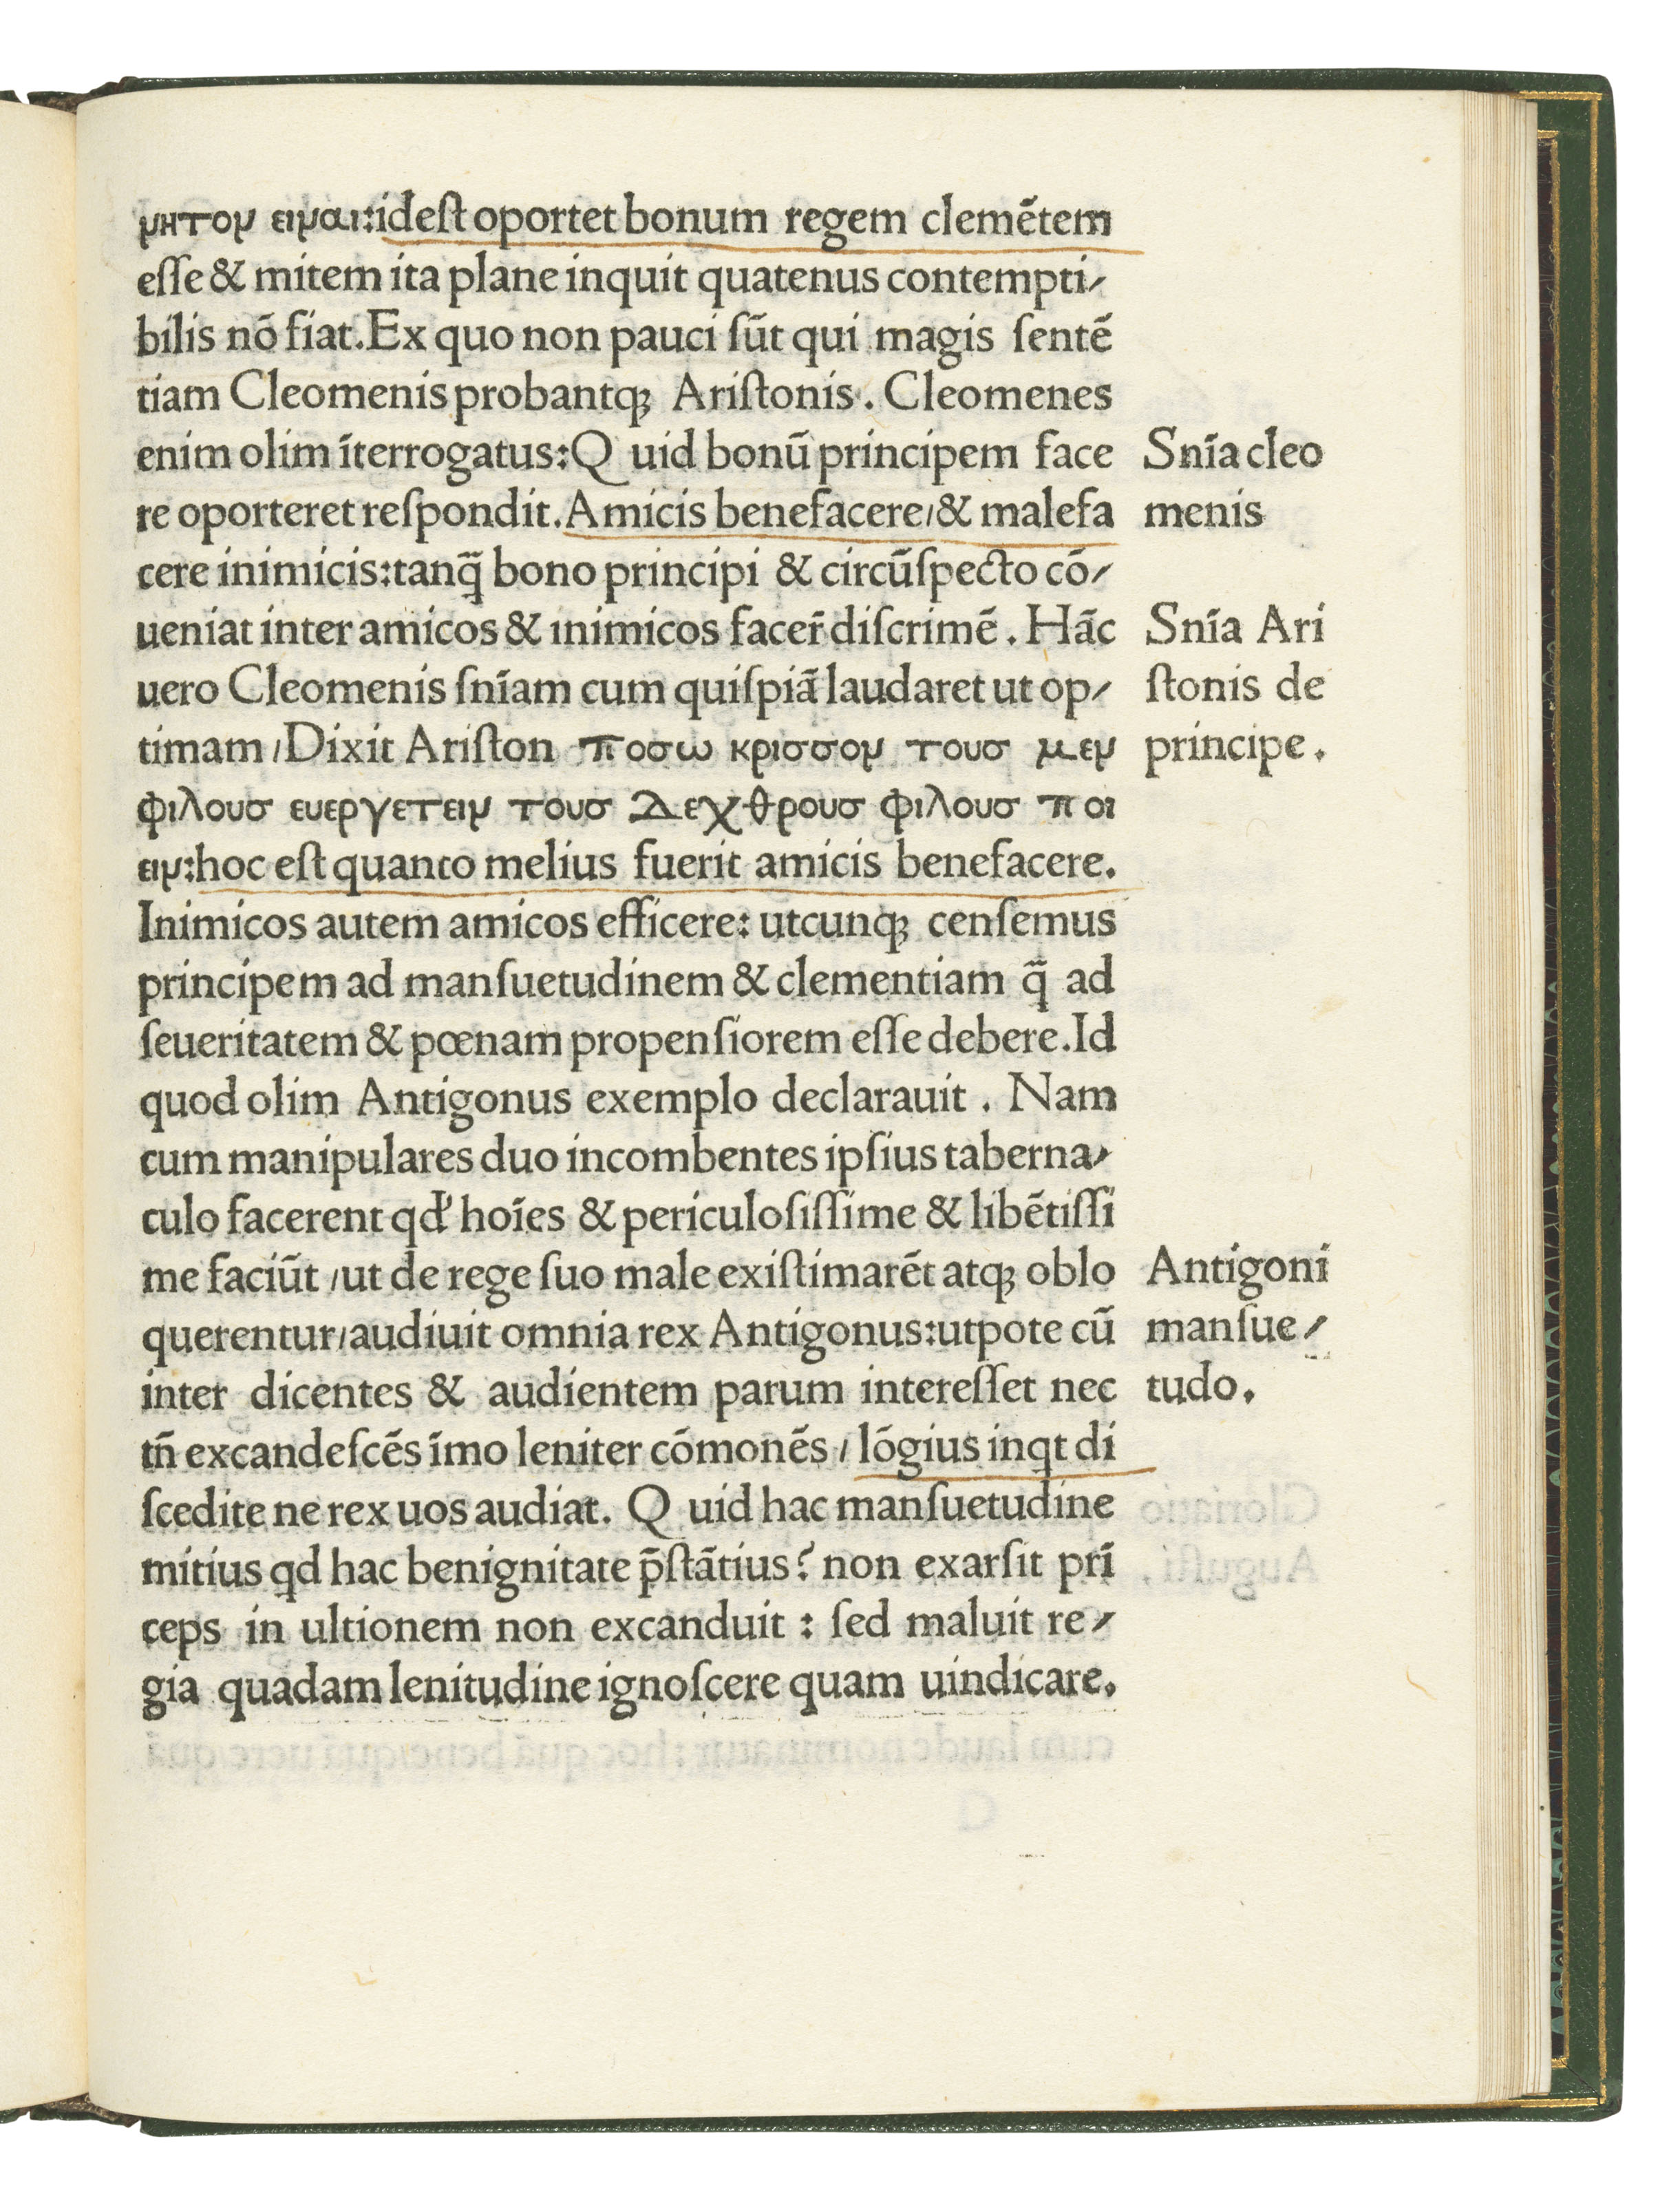 νητον ειναι:ideſt oportet bonum regem clemētem
eſſe & mitem ita plane inquit quatenus contempti⸗
bilis nō fiat.Ex quo non pauci ſūt qui magis ſentē
tiam Cleomenis probantqꝫ Ariſtonis. Cleomenes
enim olim īterrogatus:Q uid bonū principem face
re oporteret reſpondit.Amicis benefacere/& malefa
cere inimicis:tanq̄ bono principi & circūſpecto cō⸗
ueniat inter amicos & inimicos facer̄ diſcrimē. Hāc
uero Cleomenis ſnīam cum quiſpiā laudaret ut op⸗
timam/Dixit Ariſton ποσω κρισσον τουσ μεν
φιλουσ ευεργετειν τουσ Δεχθρουσ φιλουσ ποι
ειν:hoc eſt quanto melius fuerit amicis benefacere.
Inimicos autem amicos efficere: utcunqꝫ cenſemus
principem ad manſuetudinem & clementiam q̄ ad
ſeueritatem & pœnam propenſiorem eſſe debere.Id
quod olim Antigonus exemplo declarauit. Nam
cum manipulares duo incombentes ipſius taberna⸗
culo facerent qd' hoīes & periculoſiſſime & libētiſſi
me faciūt /ut de rege ſuo male exiſtimarēt atqꝫ oblo
querentur/audiuit omnia rex Antigonus:utpote cū
inter dicentes & audientem parum intereſſet nec
tn̄ excandeſcēs īmo leniter cōmonēs / lōgius inqt di
ſcedite ne rex uos audiat. Q uid hac manſuetudine
mitius qd hac benignitate p̄ſtātius? non exarſit prī
ceps in ultionem non excanduit : ſed maluit re⸗
gia quadam lenitudine ignoſcere quam uindicare.
Snīa cleo
menis
Snīa Ari
ſtonis de
principe.
Antigoni
manſue⸗
tudo.